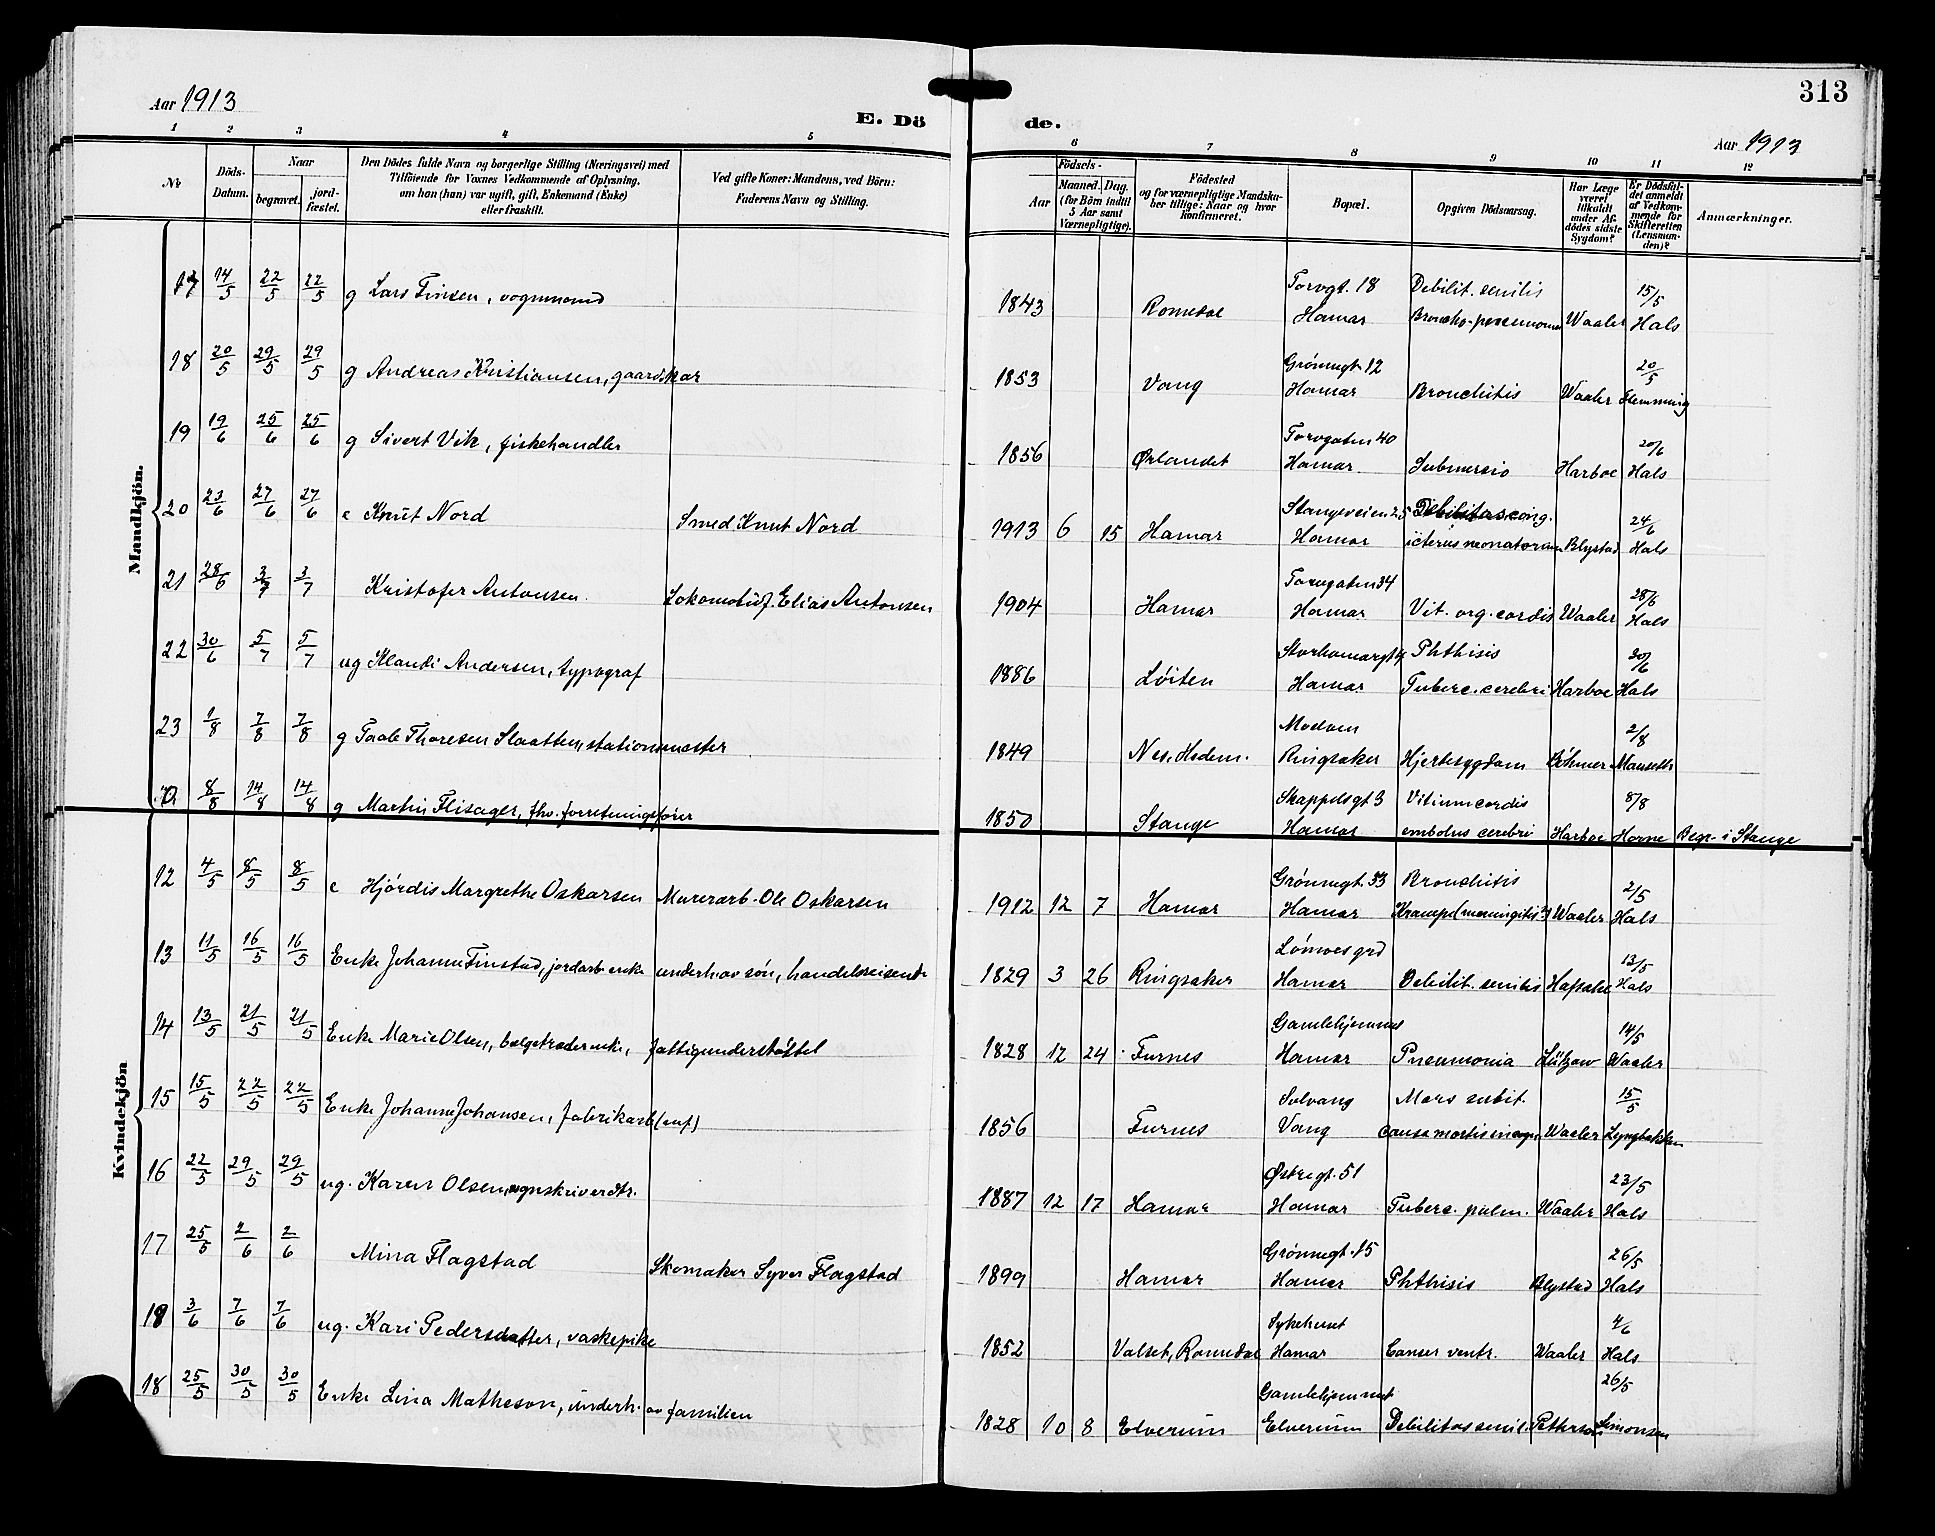 Aar 1913
E. Dö
de.
313
Aar 1913
1 2 3 4 5 6 7 8 9 10 11 12
Nr.
Döds-Datum.
Naar
begravet.
jord-fæstet.
Den Dödes fulde Navn og borgerlige Stilling (Næringsvei) med
Tilföiende for Voxnes Vedkommende af Oplysning,
om han (hun) var ugift, gift, Enkemand (Enke)
eller fraskilt.
Ved gifte Koner: Mandens, ved Börn:
Faderens Navn og Stilling.
Födsels-
Aar
Maaned. Dag.
(for Börn indtil
5 Aar samt
Værnepligtige).
Födested
og for værnepligtige Mandska-
ber tillige: Naar og hvor
konfirmeret.
Bopæl.
Opgiven Dödsaarsag.
Har Læge
været
tilkaldt
under Af-
dödes sidste
Sygdom?
Er Dödsfal-
det anmeldt
af Vedkom-
mende for
Skifteretten
(Lensman-
den)?
Anmærkninger.
Mandkjön.
17 14/5 22/5 22/5 g Lars Finsen, vognmand 1843 Romedal Torvgt. 18 Hamar Debilit. senilis Waaler 15/5 Hals
18 20/5 29/5 29/5 g Andreas Kristiansen, gaardskar 1853 Vang Grönnegt. 12 Hamar Bronchitis Waaler 20/5 Flemming
19 19/6 25/6 25/6 g Sivert Vik, fiskehandler 1856 Ørlandet Torvgaten 40 Hamar. Submersio Harboe 20/6 Hals
20 23/6 27/6 27/6 e Knut Nord Smed Knut Nord 1913 6 15 Hamar Stangeveien 25 Hamar Debilitas cong. icterus neonatorum Blystad 24/6 Hals
21 28/6 3/7 3/7 Kristofer Antonsen Lokomotivf. Elias Antonsen 1904 Hamar Torvgaten 34 Hamar Vit. org. cordis Waaler 28/6 Hals
22 30/6 5/7 5/7 ug Klaudi Andersen, typograf 1886 Löiten Storhamargt Hamar Phthisis Tuberc. cerebri Harboe 30/6 Hals
23 1/8 7/8 7/8 g Taale Thoresen Slaatten, stationsmester 1849 Nes, Hedem. Moelven Ringsaker Hjertesygdom Böhmer 2/8 Mauseth
8/8 14/8 14/8 g Martin Flisager, fhv. forretningsförer 1850 Stange Skappelsgt 3 Hamar Vitium cordis embolus cerebri Harboe 8/8 Horne Begr. i Stange
Kvindekjön
12 4/5 8/5 8/5 e Hjördis Margrethe Oskarsen Murerarb. Ole Oskarsen 1912 12 7 Hamar Grönnegt. 33 Hamar Bronchitis Waaler 2/5 Hals
13 11/5 16/5 16/5 Enke Johanne Finstad, jordarb enke underh av sön, handelsreisende 1829 3 26 Ringsaker Hamar Debilit. senilis 13/5 Hals
14 13/5 21/5 21/5 Enke Marie Olsen, bælgetræder enke, fattigunderstöttet 1828 12 24 Furnes Gamlehjemmet Hamar Pneumonia Lützow 14/5 Waaler
15 15/5 22/5 22/5 Enke Johanne Johansen, fabrikarb 1856 Furnes Solvang Vang Mors subit. Waaler 15/5 Lyngbakken
16 22/5 29/5 29/5 ug. Karen Olsen, sogneskriverdtr. 1887 12 17 Hamar Østregt. 51 Hamar Tuberc. pulm. Waaler 23/5 Hals
17 25/5 2/6 2/6 Mina Flagstad Skomaker Syver Flagstad 1899 Hamar Grönnegt. 15 Hamar Phthisis Blystad 26/5 Hals
18 3/6 7/6 7/6 ug. Kari Pedersdatter, vaskepike 1852 Valset, Romedal Sykehuset Hamar Cancer ventr. Waaler 4/6 Hals
18 25/5 30/5 30/5 Enke Lina Matheson, underh. av familien 1828 10 8 Elverum Gamlehjemmet Elverum Debilitas senil. Petterson 26/5 Simonsen